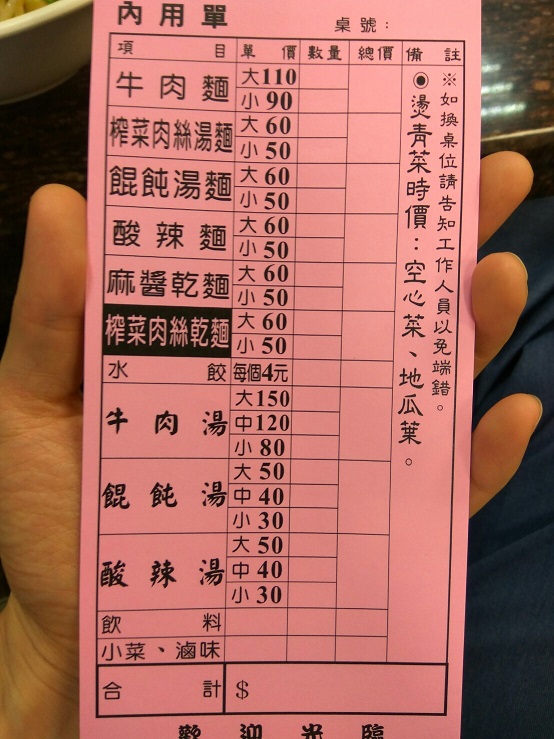 內用單
桌號：
項目 單價 數量 總價 備註
牛肉麵 大110
小 90
榨菜肉絲湯麵 大 60
小 50
餛飩湯麵 大 60
小 50
酸辣麵 大 60
小 50
麻醬乾麵 大 60
小 50
榨菜肉絲乾麵 大 60
小 50
水餃 每個4元
牛肉湯 大150
中120
小 80
餛飩湯 大 50
中 40
小 30
酸辣湯 大 50
中 40
小 30
飲料
小菜、滷味
合計 $
※如換桌位請告知工作人員以免端錯。
◉燙青菜時價：空心菜、地瓜葉。
歡迎光臨